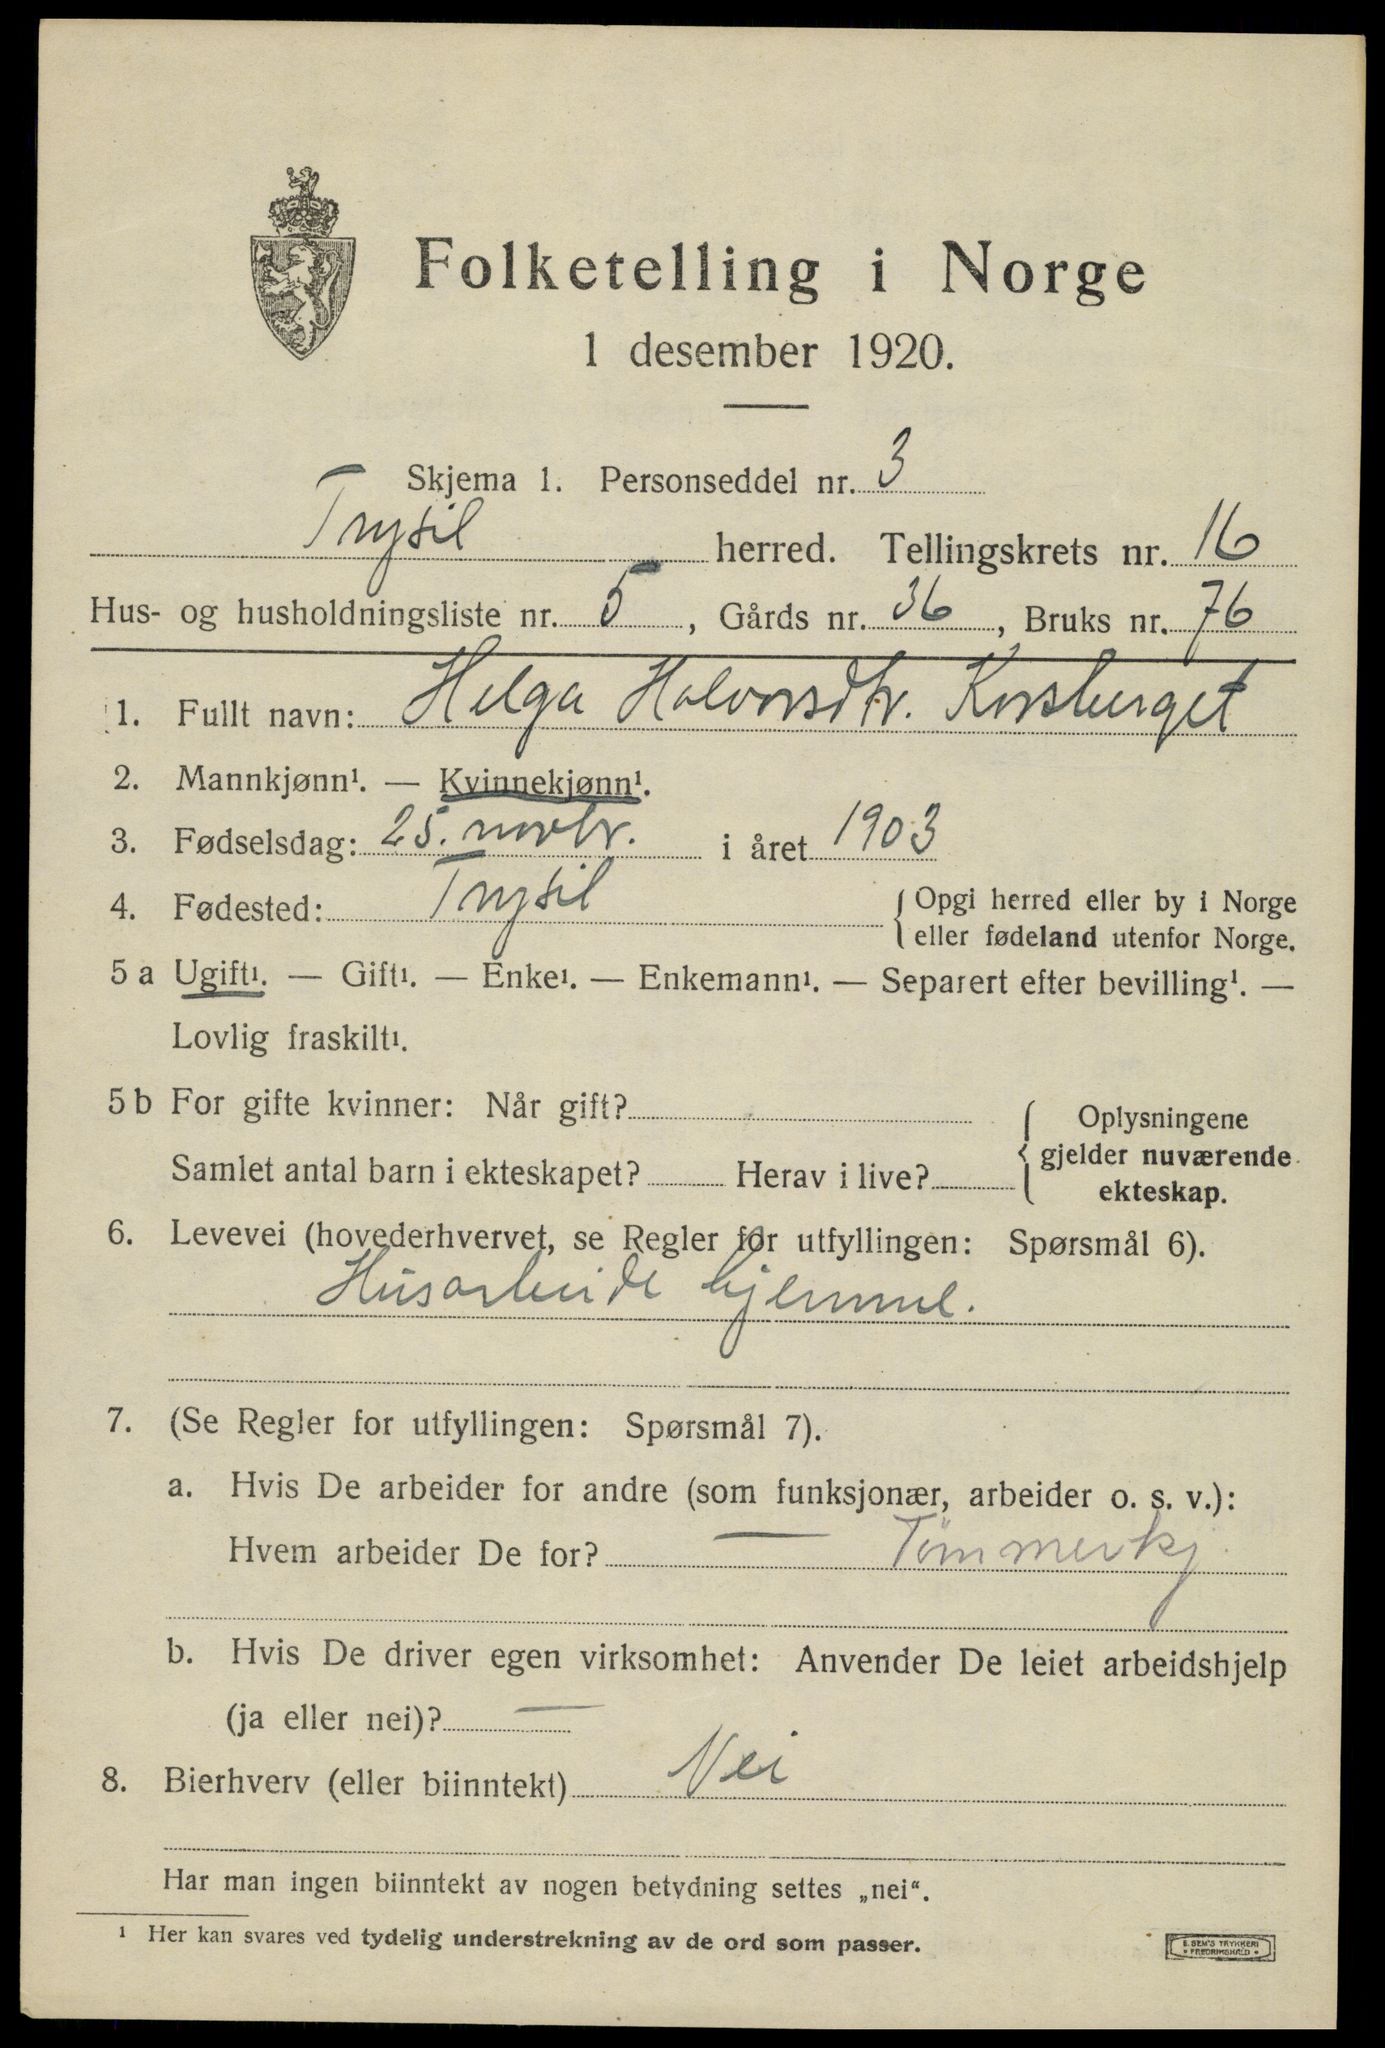 Folketelling i Norge
1 desember 1920.
Skjema 1. Personseddel nr. 3
Trysil herred. Tellingskrets nr. 16
Hus- og husholdningsliste nr. 5, Gårds nr. 36, Bruks nr. 76
1. Fullt navn: Helga Halvorsdtr. Korsberget
2. Mannkjønn¹. — Kvinnekjønn¹.
3. Fødselsdag: 25. novbr. i året 1903
4. Fødested: Trysil { Opgi herred eller by i Norge
eller fødeland utenfor Norge.
5 a Ugift¹. — Gift¹. — Enke¹. — Enkemann¹. — Separert efter bevilling¹. —
Lovlig fraskilt¹.
5 b For gifte kvinner: Når gift? { Oplysningene
gjelder nuværende
Samlet antal barn i ekteskapet? Herav i live?
ekteskap.
6. Levevei (hovederhvervet, se Regler for utfyllingen: Spørsmål 6).
Husarbeide hjemme.
7. (Se Regler for utfyllingen: Spørsmål 7).
a. Hvis De arbeider for andre (som funksjonær, arbeider o. s. v.):
Hvem arbeider De for? — Tømmerkj.
b. Hvis De driver egen virksomhet: Anvender De leiet arbeidshjelp
(ja eller nei)? —
8. Bierhverv (eller biinntekt) Nei
Har man ingen biinntekt av nogen betydning settes „nei“.
¹ Her kan svares ved tydelig understrekning av de ord som passer.
E. SEM'S TRYKKERI
• FREDRIKSHALD •